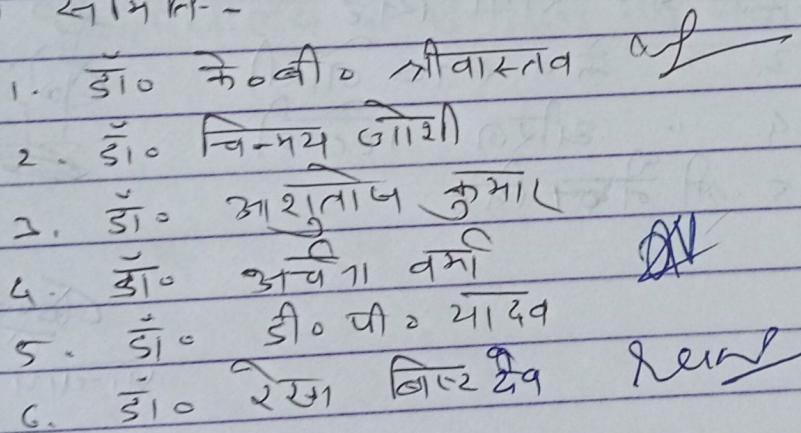 समिति--
1. डॉ० के०बी० श्रीवास्तव
2. डॉ० चिन्मय जोशी
3. डॉ० आशुतोष कुमार
4. डॉ० अर्चना वर्मा
5. डॉ० डी० पी० यादव
6. डॉ० रेखा बिष्ट देव